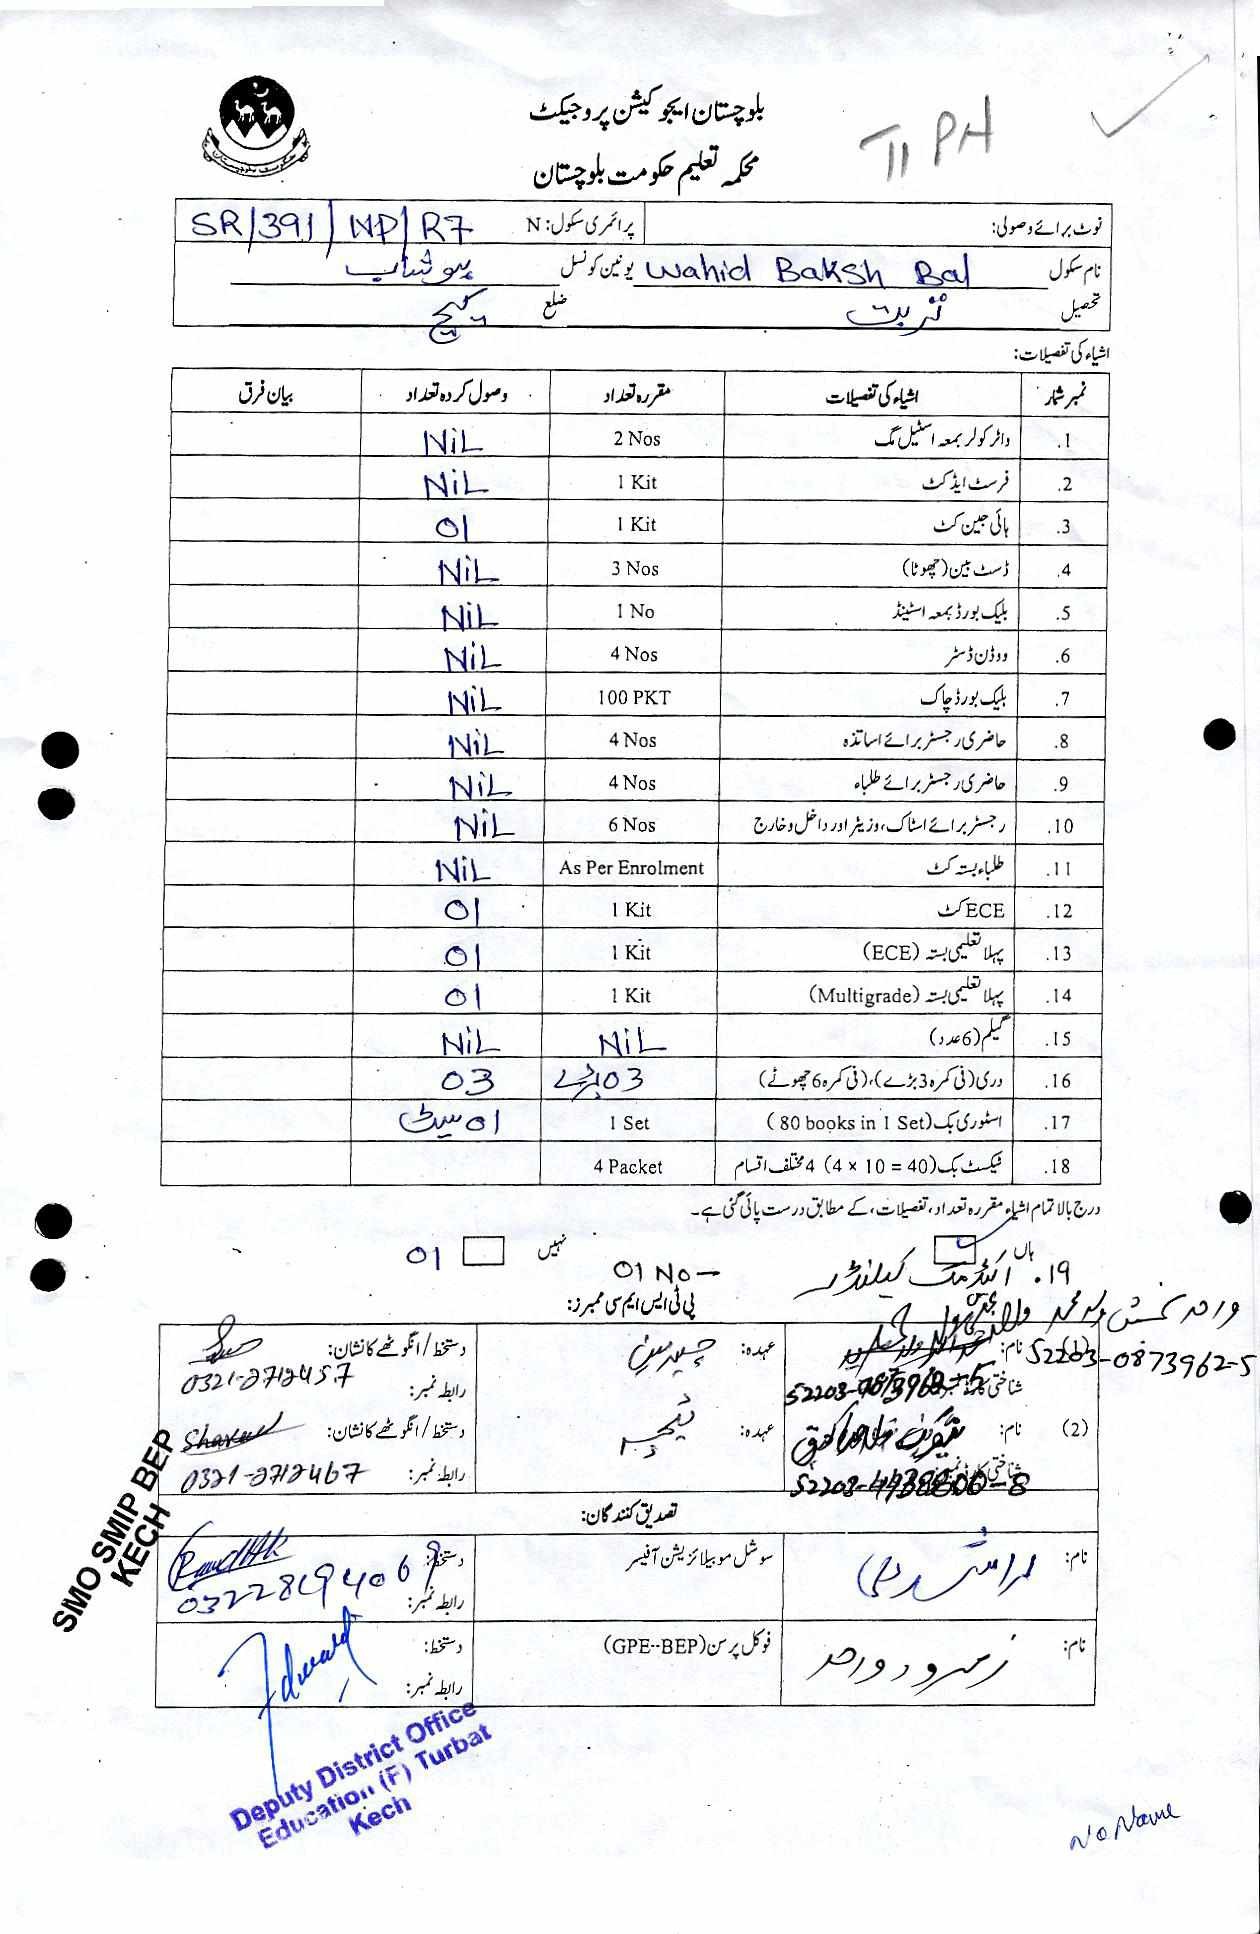 بلوچستان ایجوکیشن پروجیکٹ
محکمہ تعلیم حکومت بلوچستان
TI PH
نوٹ برائے وصولی: پرائمری سکول: N SR/391/NP/R7
نام سکول Wahid Baksh Bal یونین کونسل ہوشاب
تحصیل تربت ضلع کیچ
اشیاء کی تفصیلات:
نمبر شمار اشیاء کی تفصیلات مقررہ تعداد وصول کردہ تعداد بیان فرق
1. واٹر کولر بمعہ اسٹیل مگ 2 Nos NiL
2. فرسٹ ایڈ کٹ 1 Kit NiL
3. ہائی جین کٹ 1 Kit 01
4. ڈسٹ بین (چھوٹا) 3 Nos NiL
5. بلیک بورڈ بمعہ اسٹینڈ 1 No NiL
6. ووڈن ڈسٹر 4 Nos NiL
7. بلیک بورڈ چاک 100 PKT NiL
8. حاضری رجسٹر برائے اساتذہ 4 Nos NiL
9. حاضری رجسٹر برائے طلباء 4 Nos NiL
10. رجسٹر برائے اسٹاک، وزیٹر اور داخل و خارج 6 Nos NiL
11. طلباء بستہ کٹ As Per Enrolment NiL
12. ECE کٹ 1 Kit 01
13. پہلا تعلیمی بستہ (ECE) 1 Kit 01
14. پہلا تعلیمی بستہ (Multigrade) 1 Kit 01
15. گیلم (6 عدد) NiL NiL
16. دری (فی کمرہ 3 بڑے)، (فی کمرہ 6 چھوٹے) 03 بڑے 03
17. اسٹوری بک (80 books in 1 Set) 1 Set 01 سیٹ
18. ٹیکسٹ بک (4 × 10 = 40) 4 مختلف اقسام 4 Packet
درج بالا تمام اشیاء مقررہ تعداد، تفصیلات، کے مطابق درست پائی گئی ہے۔
ہاں نہیں
19. اکیڈمک کیلنڈر 01 No- 01
پی ٹی ایس ایم سی ممبرز:
واحد بخش ولد محمد
52203-0873962-5
(1) نام: عہدہ: چیئرمین دستخط / انگوٹھے کا نشان:
شناختی کارڈ نمبر: رابطہ نمبر: 0321-2712457
(2) نام: عہدہ: ٹیچر دستخط / انگوٹھے کا نشان:
شناختی کارڈ نمبر: رابطہ نمبر: 0321-2712467
تصدیق کنندگان:
نام: سوشل موبیلائزیشن آفیسر دستخط:
رابطہ نمبر: 03228194069
نام: زمرود واحد فوکل پرسن (GPE--BEP) دستخط:
رابطہ نمبر:
SMO SMIP BEP
KECH
Deputy District Office
Education (F) Turbat
Kech
No Name